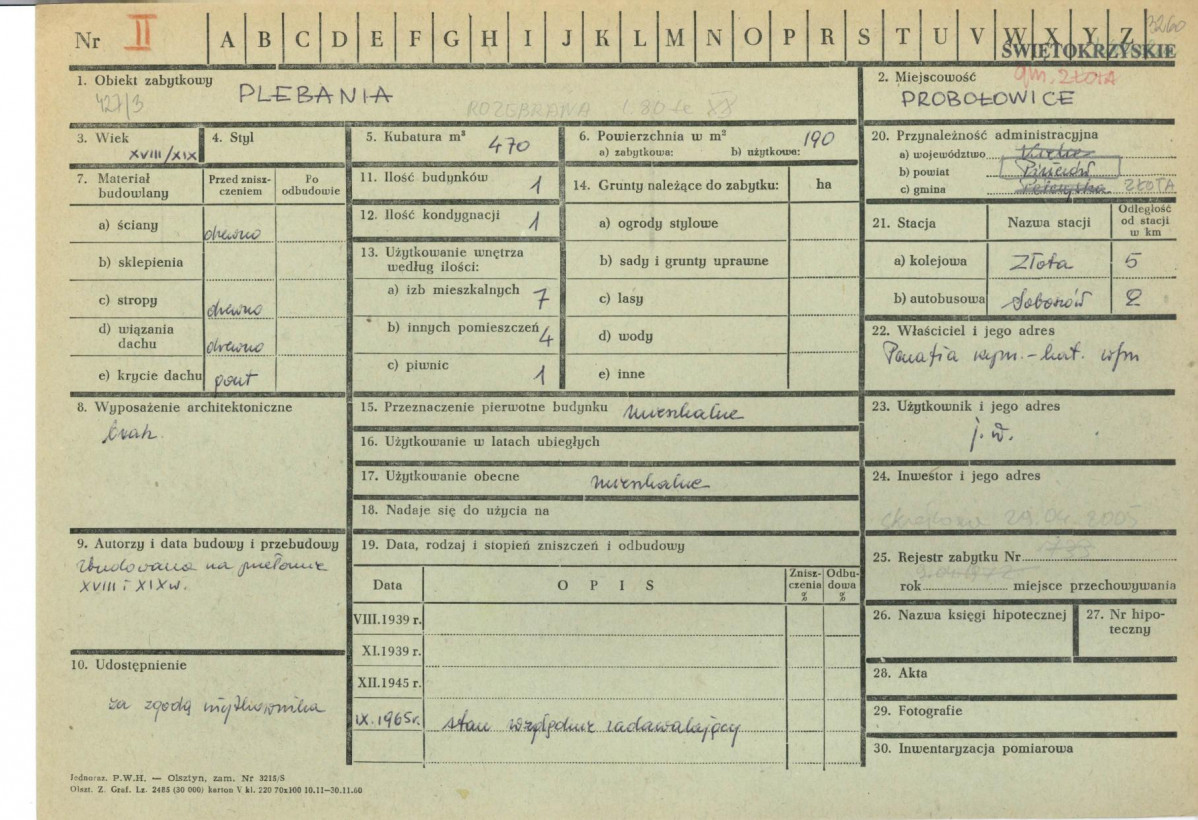 Nr II A B C D E F G H I J K L M N O P R S T U V W X Y Z 3260
ŚWIĘTOKRZYSKIE
1. Obiekt zabytkowy
427/3 PLEBANIA
ROZEBRANA l. 80-te XX
2. Miejscowość
gm. ZŁOTA
PROBOŁOWICE
3. Wiek
XVIII/XIX
4. Styl
5. Kubatura m³
470
6. Powierzchnia w m²
190
a) zabytkowa: b) użytkowa:
20. Przynależność administracyjna
a) województwo Kielce
b) powiat Pińczów
c) gmina ZŁOTA
7. Materiał budowlany
Przed zniszczeniem
Po odbudowie
a) ściany drewno
b) sklepienia
c) stropy drewno
d) wiązania dachu drewno
e) krycie dachu gont
11. Ilość budynków 1
12. Ilość kondygnacji 1
13. Użytkowanie wnętrza według ilości:
a) izb mieszkalnych 7
b) innych pomieszczeń 4
c) piwnic 1
14. Grunty należące do zabytku: ha
a) ogrody stylowe
b) sady i grunty uprawne
c) lasy
d) wody
e) inne
21. Stacja
Nazwa stacji
Odległość od stacji w km
a) kolejowa Złota 5
b) autobusowa Sobowów 2
22. Właściciel i jego adres
Parafia rzym.-kat. włm
8. Wyposażenie architektoniczne
brak.
15. Przeznaczenie pierwotne budynku mieszkalne
16. Użytkowanie w latach ubiegłych
17. Użytkowanie obecne mieszkalne
18. Nadaje się do użycia na
23. Użytkownik i jego adres
j.w.
24. Inwestor i jego adres
skreślono 29.04.2005
9. Autorzy i data budowy i przebudowy
zbudowana na przełomie
XVIII i XIX w.
19. Data, rodzaj i stopień zniszczeń i odbudowy
Data
O P I S
Zniszczenia %
Odbudowa %
VIII.1939 r.
XI.1939 r.
XII.1945 r.
IX.1965r. stan względnie zadawalający
25. Rejestr zabytku Nr
rok miejsce przechowywania
26. Nazwa księgi hipotecznej
27. Nr hipoteczny
10. Udostępnienie
za zgodą użytkownika
28. Akta
29. Fotografie
30. Inwentaryzacja pomiarowa
Jednoraz. P.W.H. — Olsztyn, zam. Nr 3215/S
Olszt. Z. Graf. Lz. 2485 (30 000) karton V kl. 220 70x100 10.11—30.11.60